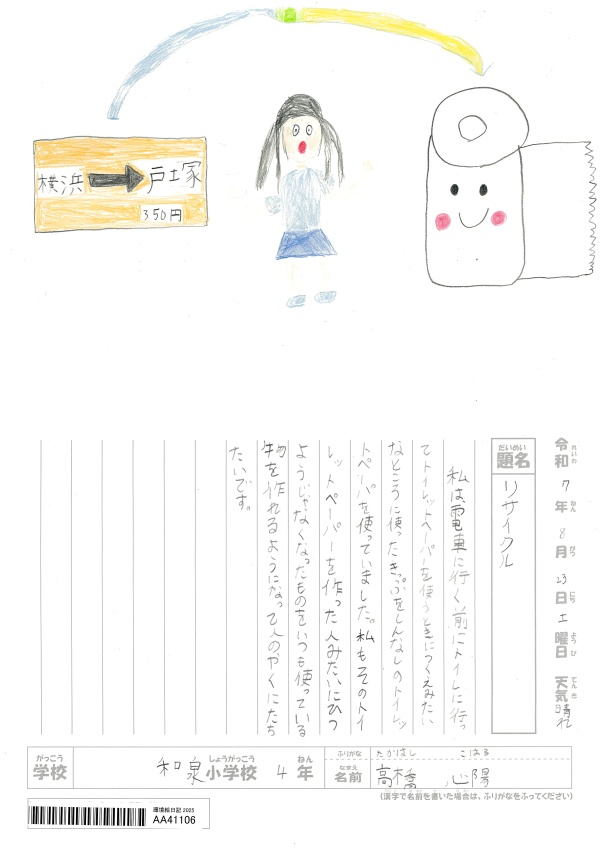 横浜 → 戸土塚
350円
令和7年8月23日土曜日 天気 晴れ
れいわ ねん がつ にち ようび てんき
だいめい
題名
リサイクル
私は、電車に行く前にトイレに行っ
てトイレットペーパーを使うときにつくえみたい
なところに使ったきっぷをしんなしのトイレッ
トペーパを使っていました。私もそのトイ
レットペーパーを作った人みたいにひつ
ようじゃなくなったものをいつも使っている
物を作れるようになって人のやくにたち
たいです。
がっこう
学校
和泉小学校 4年
しょうがっこう ねん
ふりがな たかはし こはる
なまえ
名前 高橋 心陽
(漢字で名前を書いた場合は、ふりがなをふってください)
環境絵日記 2025
AA41106